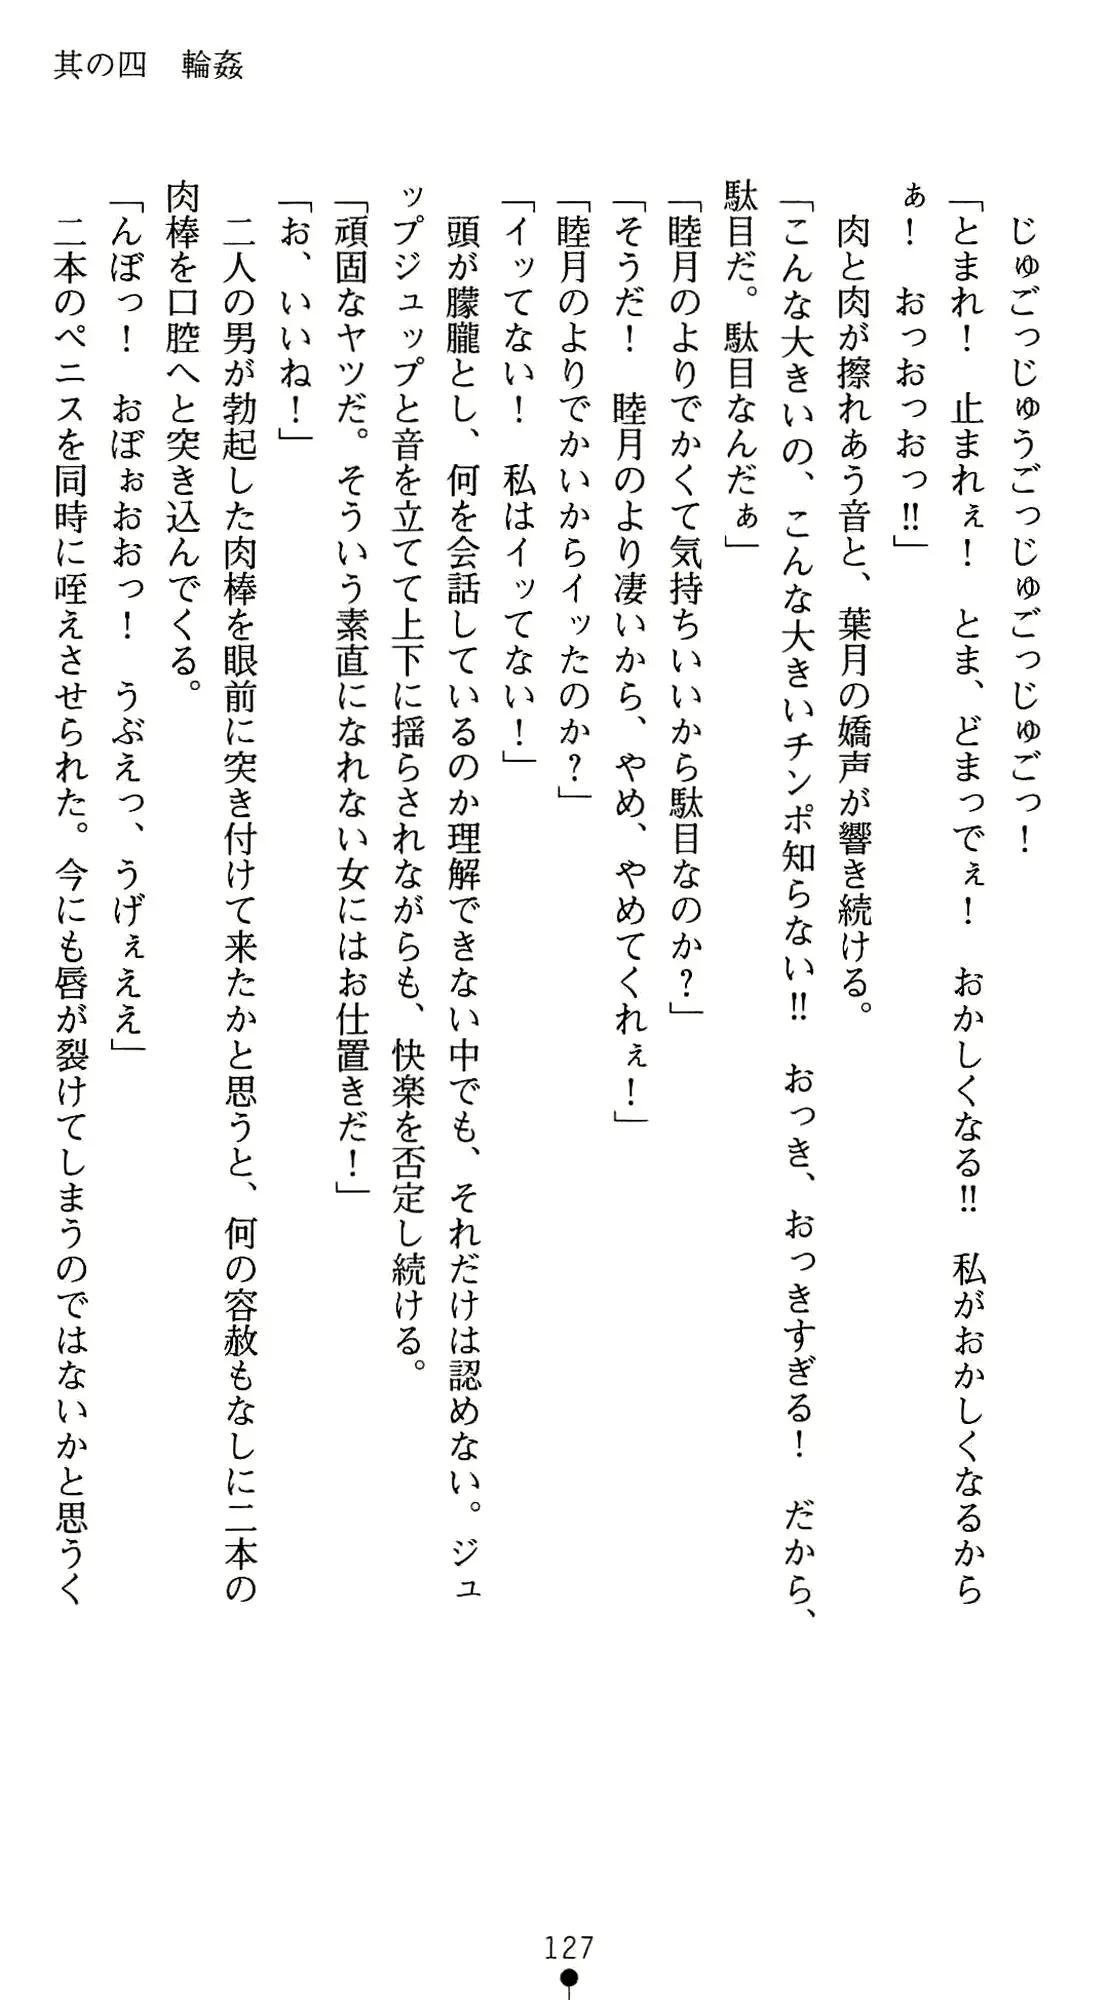 其の四　輪姦
じゅごっじゅうごっじゅごっじゅごっ！
「とまれ！　止まれぇ！　とま、どまっでぇ！　おかしくなる‼　私がおかしくなるから
ぁ！　おっおっおっ‼」
肉と肉が擦れあう音と、葉月の嬌声が響き続ける。
「こんな大きいの、こんな大きいチンポ知らない‼　おっき、おっきすぎる！　だから、
駄目だ。駄目なんだぁ」
「睦月のよりでかくて気持ちいいから駄目なのか？」
「そうだ！　睦月のより凄いから、やめ、やめてくれぇ！」
「睦月のよりでかいからイッたのか？」
「イッてない！　私はイッてない！」
頭が朦朧とし、何を会話しているのか理解できない中でも、それだけは認めない。ジュ
ップジュップと音を立てて上下に揺らされながらも、快楽を否定し続ける。
「頑固なヤツだ。そういう素直になれない女にはお仕置きだ！」
「お、いいね！」
二人の男が勃起した肉棒を眼前に突き付けて来たかと思うと、何の容赦もなしに二本の
肉棒を口腔へと突き込んでくる。
「んぼっ！　おぼぉおおっ！　うぶえっ、うげぇええ」
二本のペニスを同時に咥えさせられた。今にも唇が裂けてしまうのではないかと思うく
127